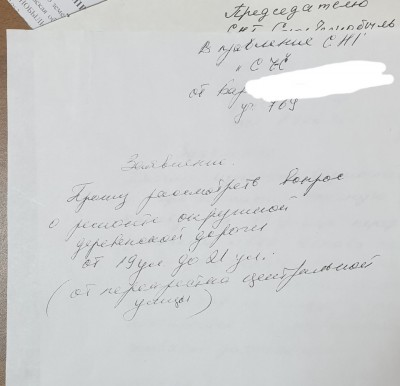 Председателю
СНТ
В правление СНТ
от Вар
уч. 769
Заявление.
Прошу рассмотреть вопрос
о ремонте окружной
деревенской дороги
от 19 ул до 21 ул.
(от перекрестка центральной
улицы)